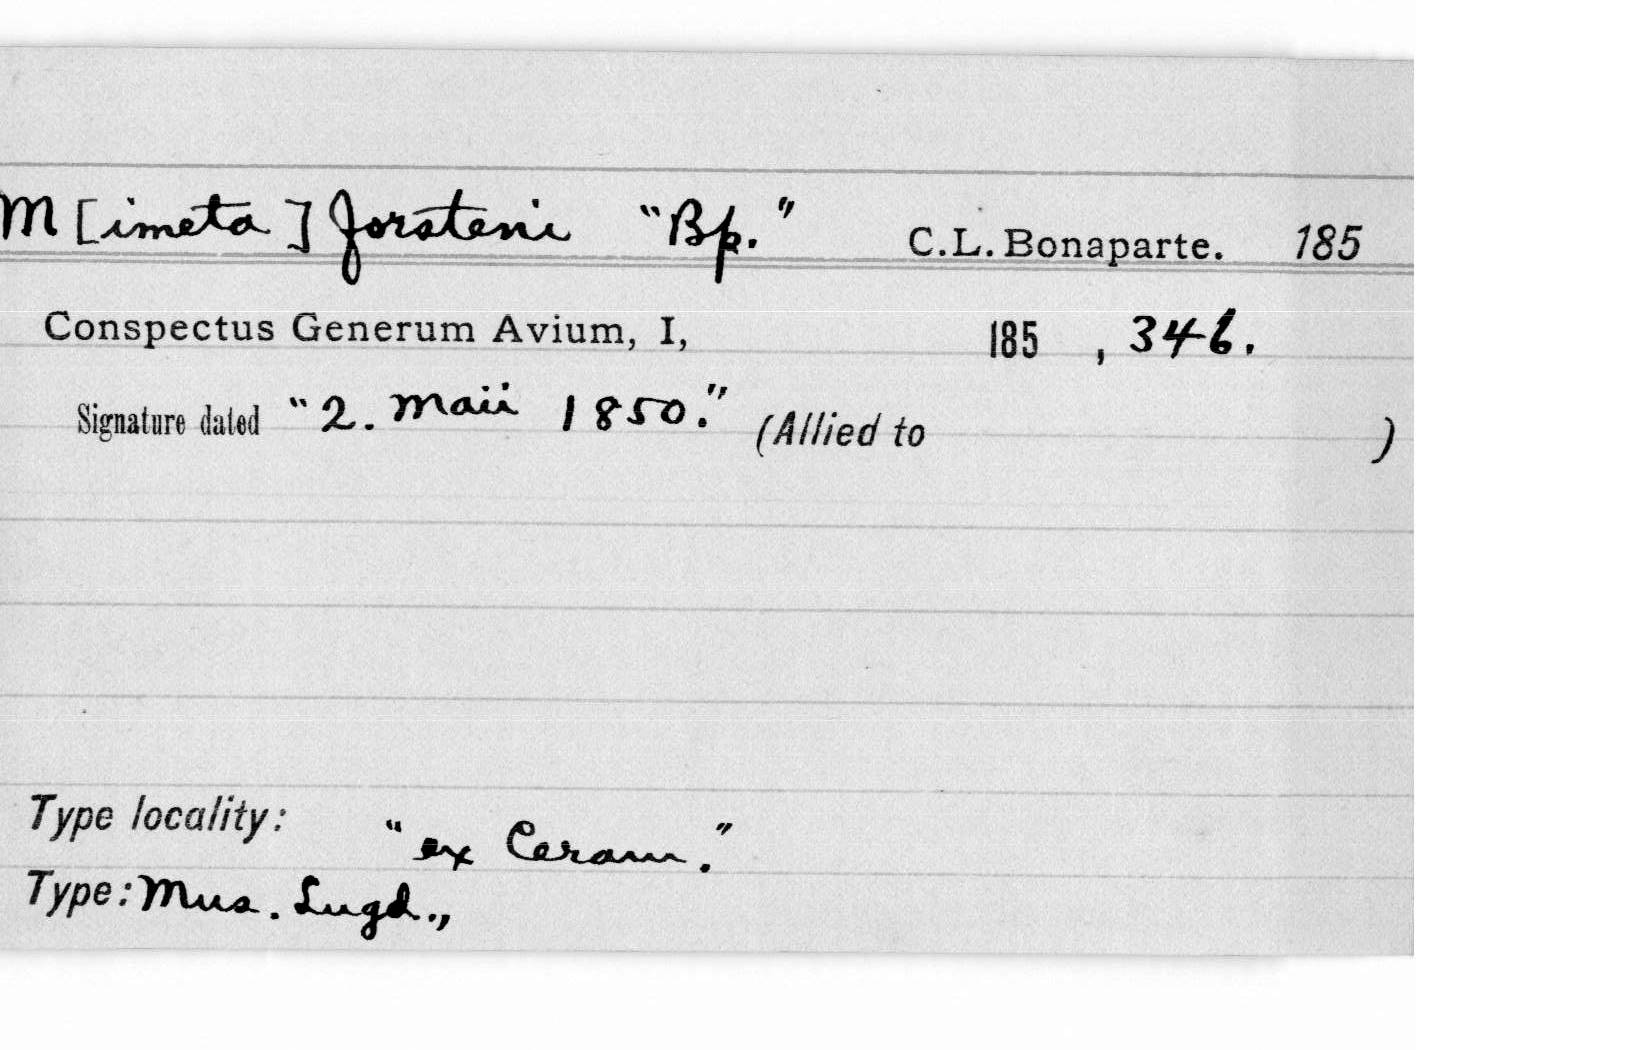 M [imeta] forsteni "Bp." C.L. Bonaparte. 185
Conspectus Generum Avium, I, 185 , 346.
Signature dated "2. Maii 1850." (Allied to )
Type locality: "ex Ceram."
Type: Mus. Lugd.,